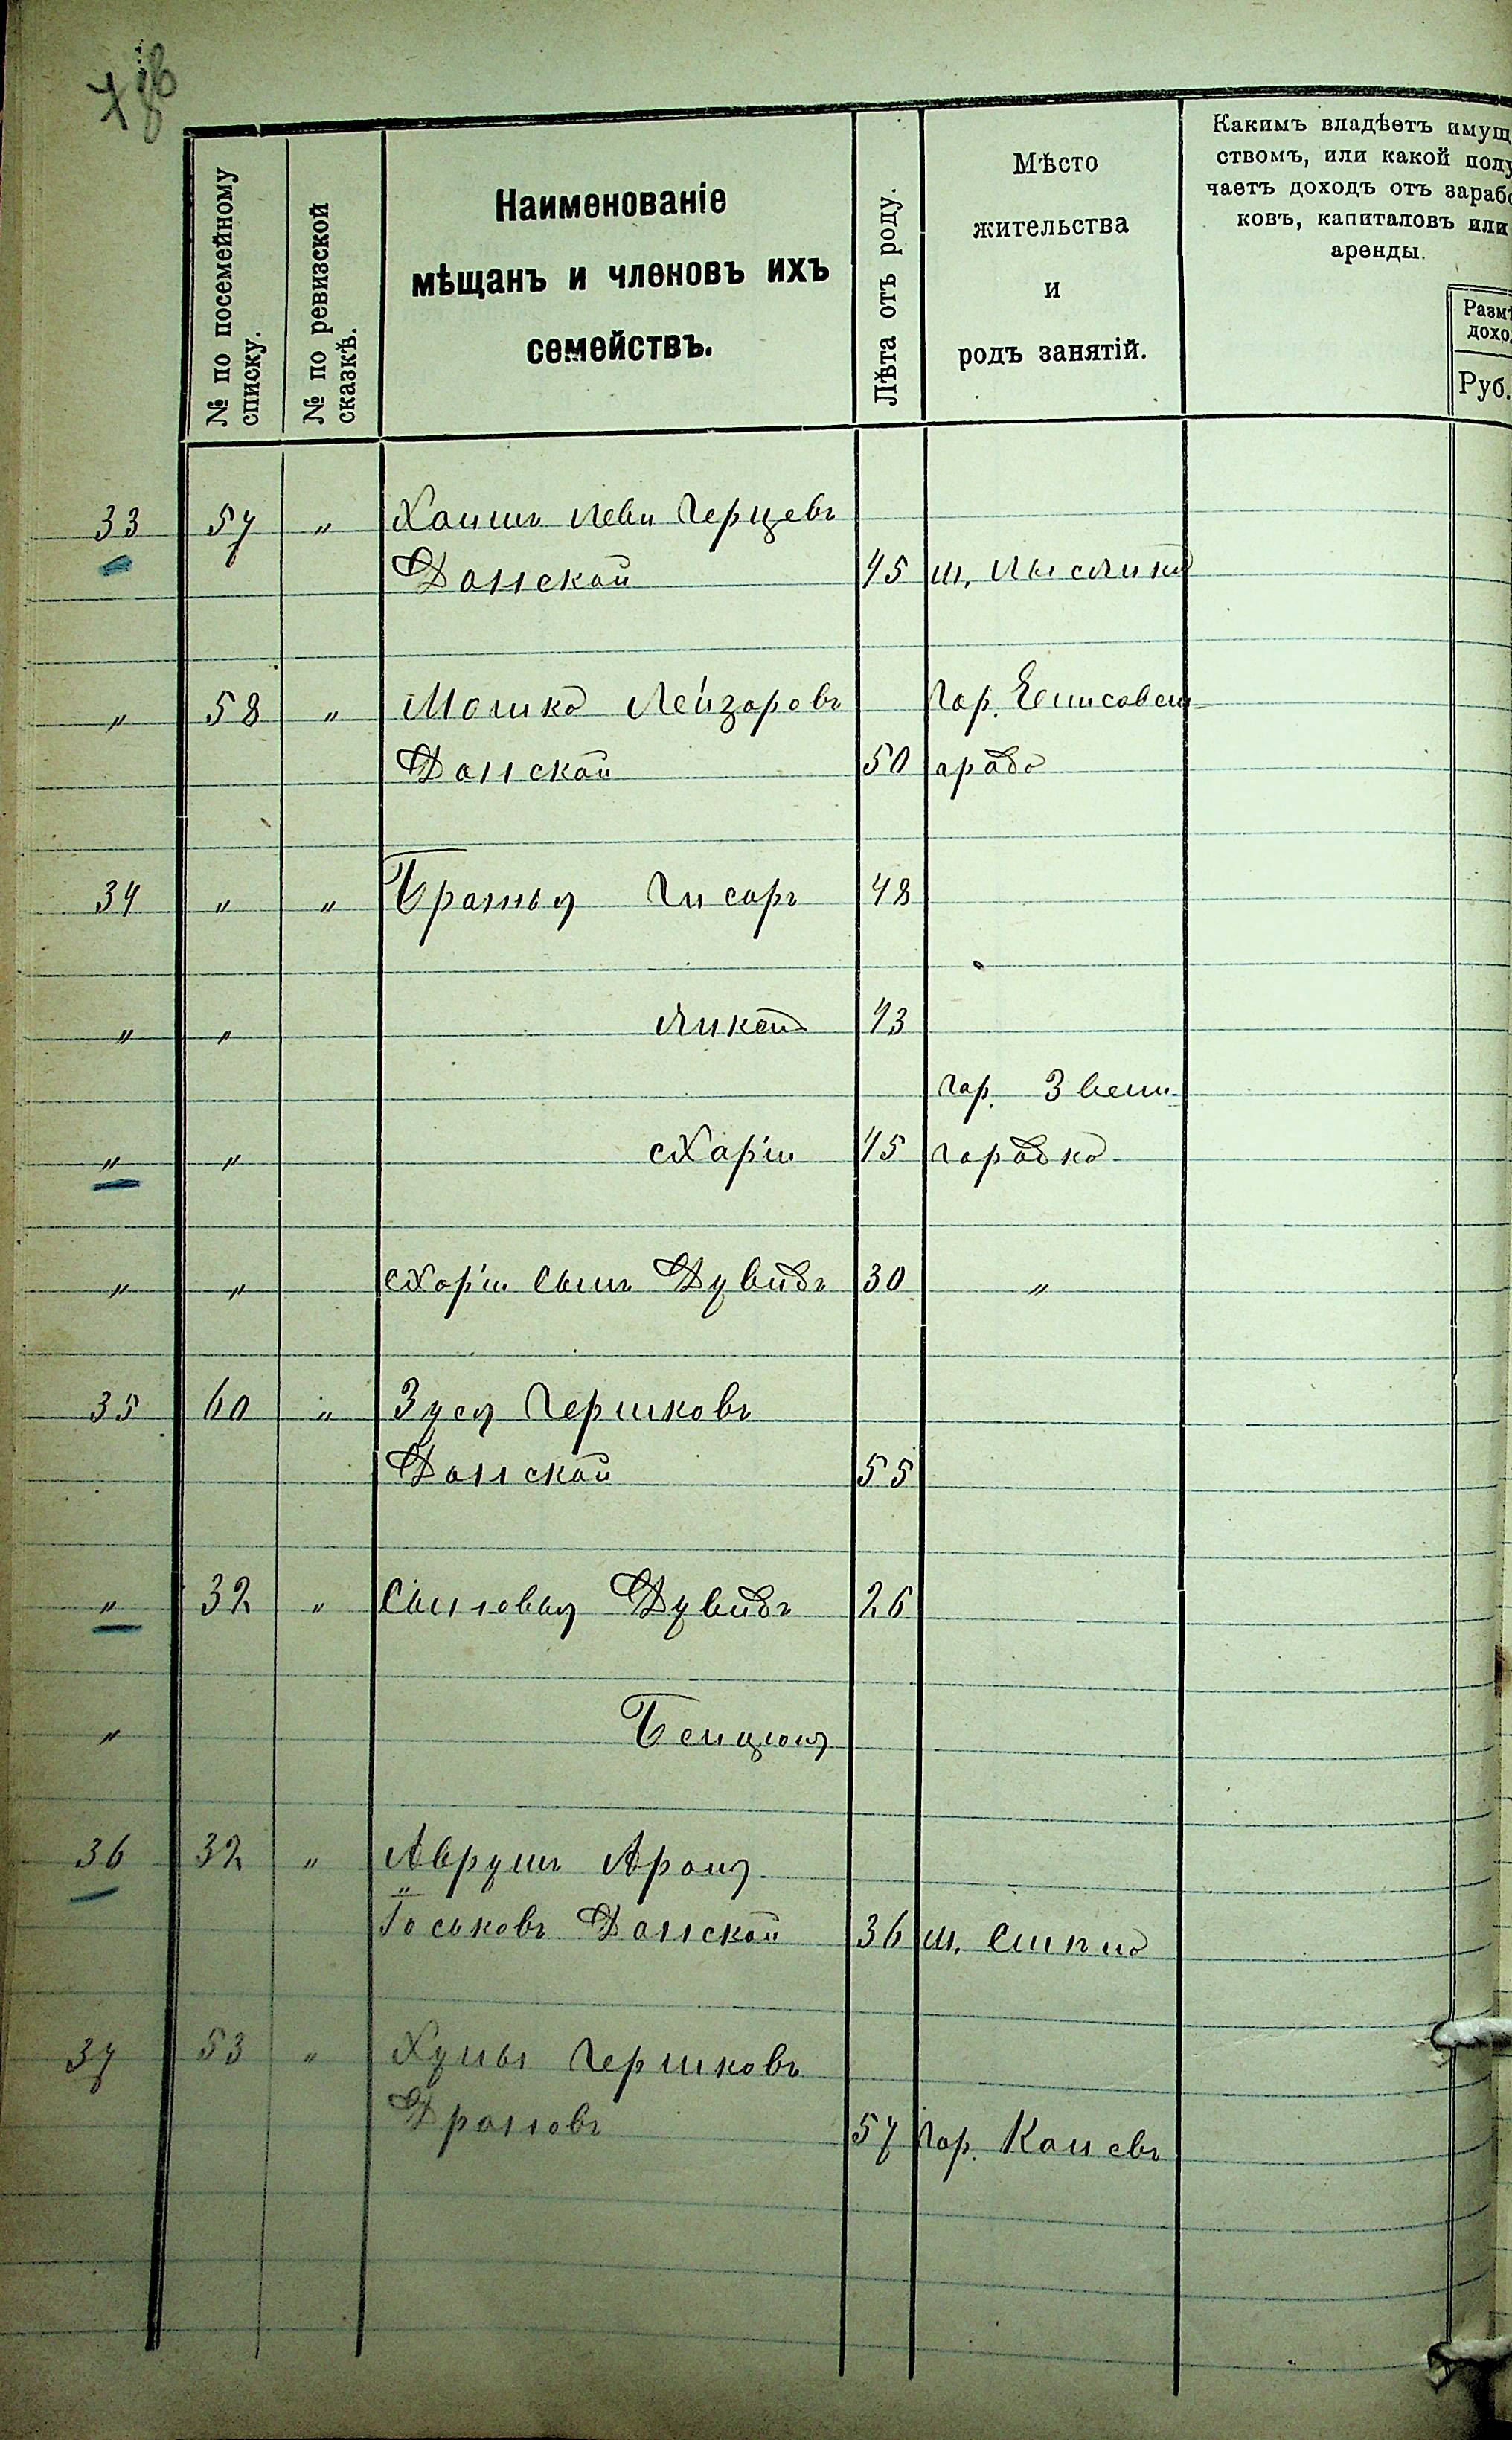 № по посемейному
списку.
№ по ревизской
сказкѣ.
Наименованіе
мѣщанъ и членовъ ихъ
семействъ.
Лѣта отъ роду.
Мѣсто
жительства
и
родъ занятій.
Какимъ владѣетъ имущ
ствомъ, или какой полу
чаетъ доходъ отъ зарабо
ковъ, капиталовъ или
аренды.
Размѣ
дохо
Руб.
33 57 „ Хаимъ Леви Герцевъ
Донской 45 м. Лысянка
„ 58 „ Мошко Лейзоровъ Гор. Елисавет-
Донской 50 градъ
34 „ „ Братья Гисаръ 48
„ „ 43
гор. Звени
„ „ Харій 45 городка
„ „ Харія сынъ Дувидъ 30 „
35 60 „ Зуся Гершковъ
Донской 55
„ 32 „ Сыновья Дувидъ 26
„ Бенціонъ
36 32 „ Аврумъ Аронъ
Іоськовъ Донской 36 м.
37 53 „ Гершковъ
57 гор. Каневъ